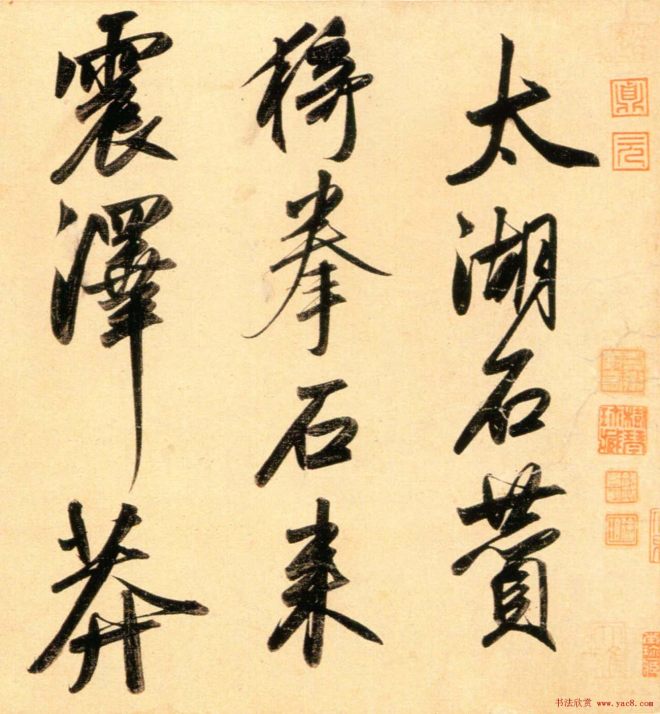 太湖石贊
猗拳石來
震澤莽
貞
元
书法欣赏 www.yac8.com